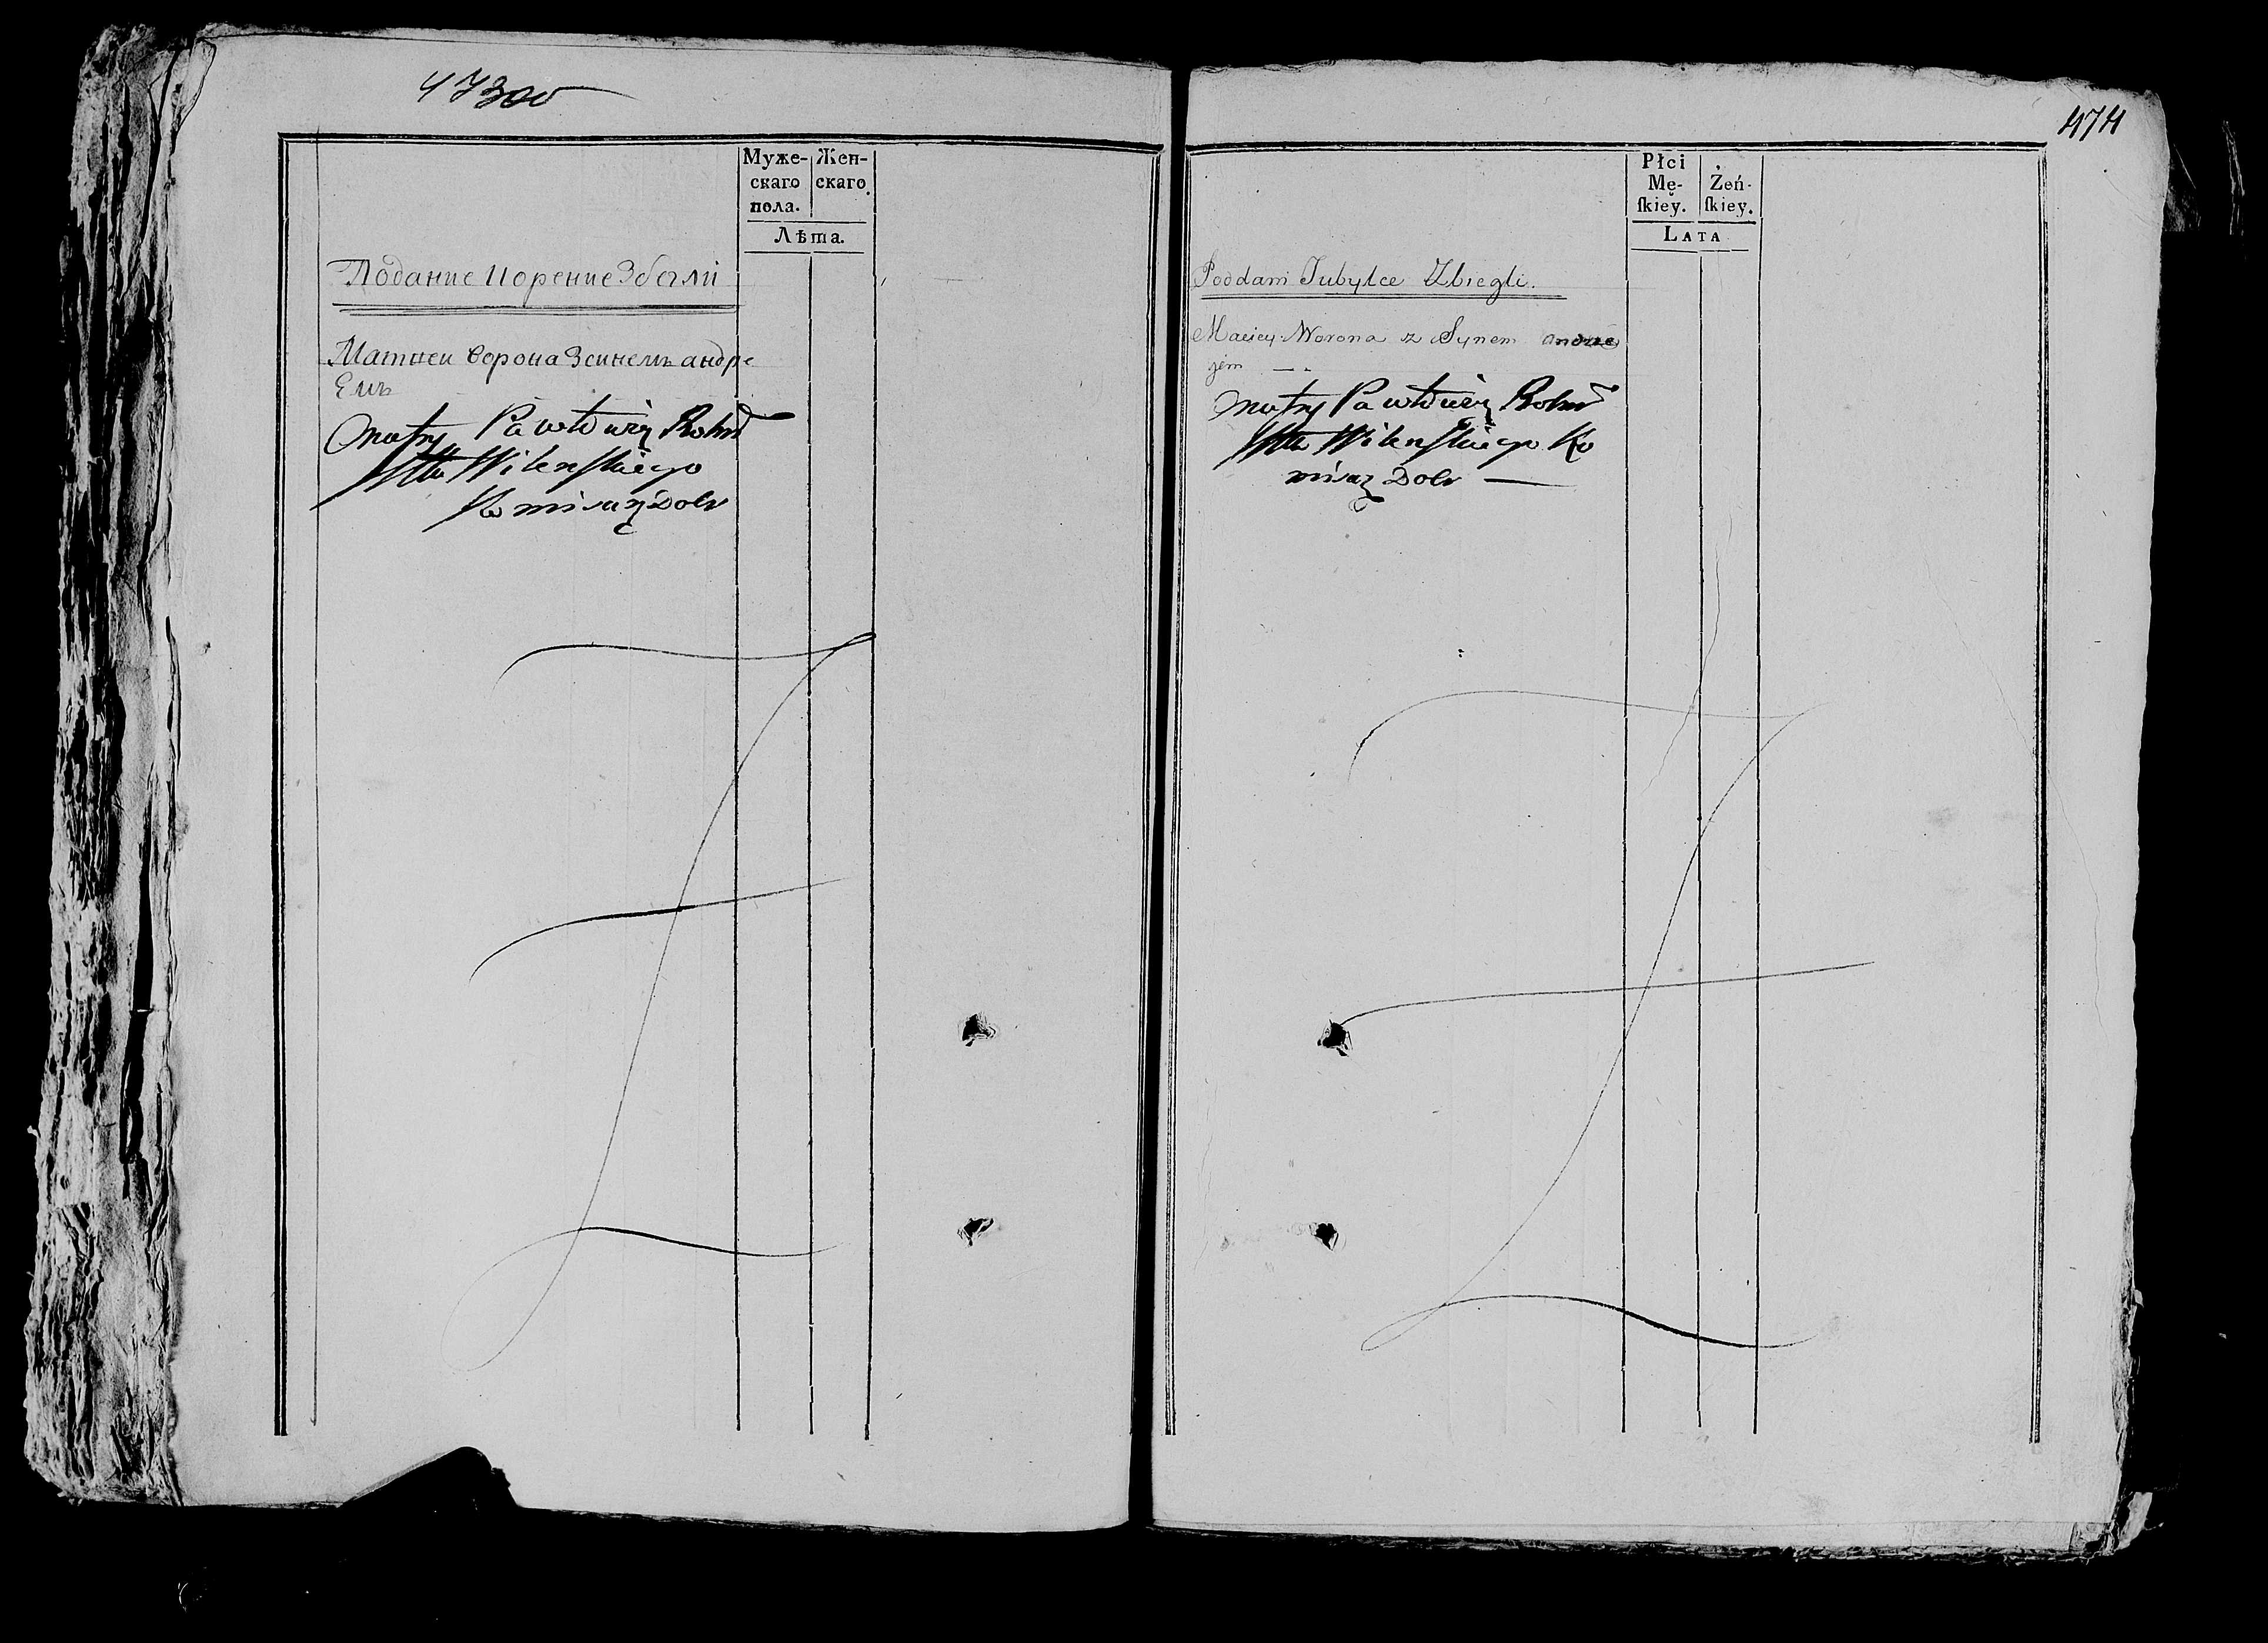 473об
Муже-
скаго
пола.
Жен-
скаго.
Лѣта.
Подание Иорение Збегли
Матией Ворона Зсинемъ андре
Емъ
Onufry Pawłowicz Rotm
Wttwa Wilenskiego
Komisarz Dobr
474
Płci
Mę-
ſkiey.
Żeń-
ſkiey.
LATA
Poddani Tubylce Zbiegli.
Maciey Worona z Synem andrze
jem
Onufry Pawłowicz Rotm
Wttwa Wilenskiego Ko
misarz Dobr